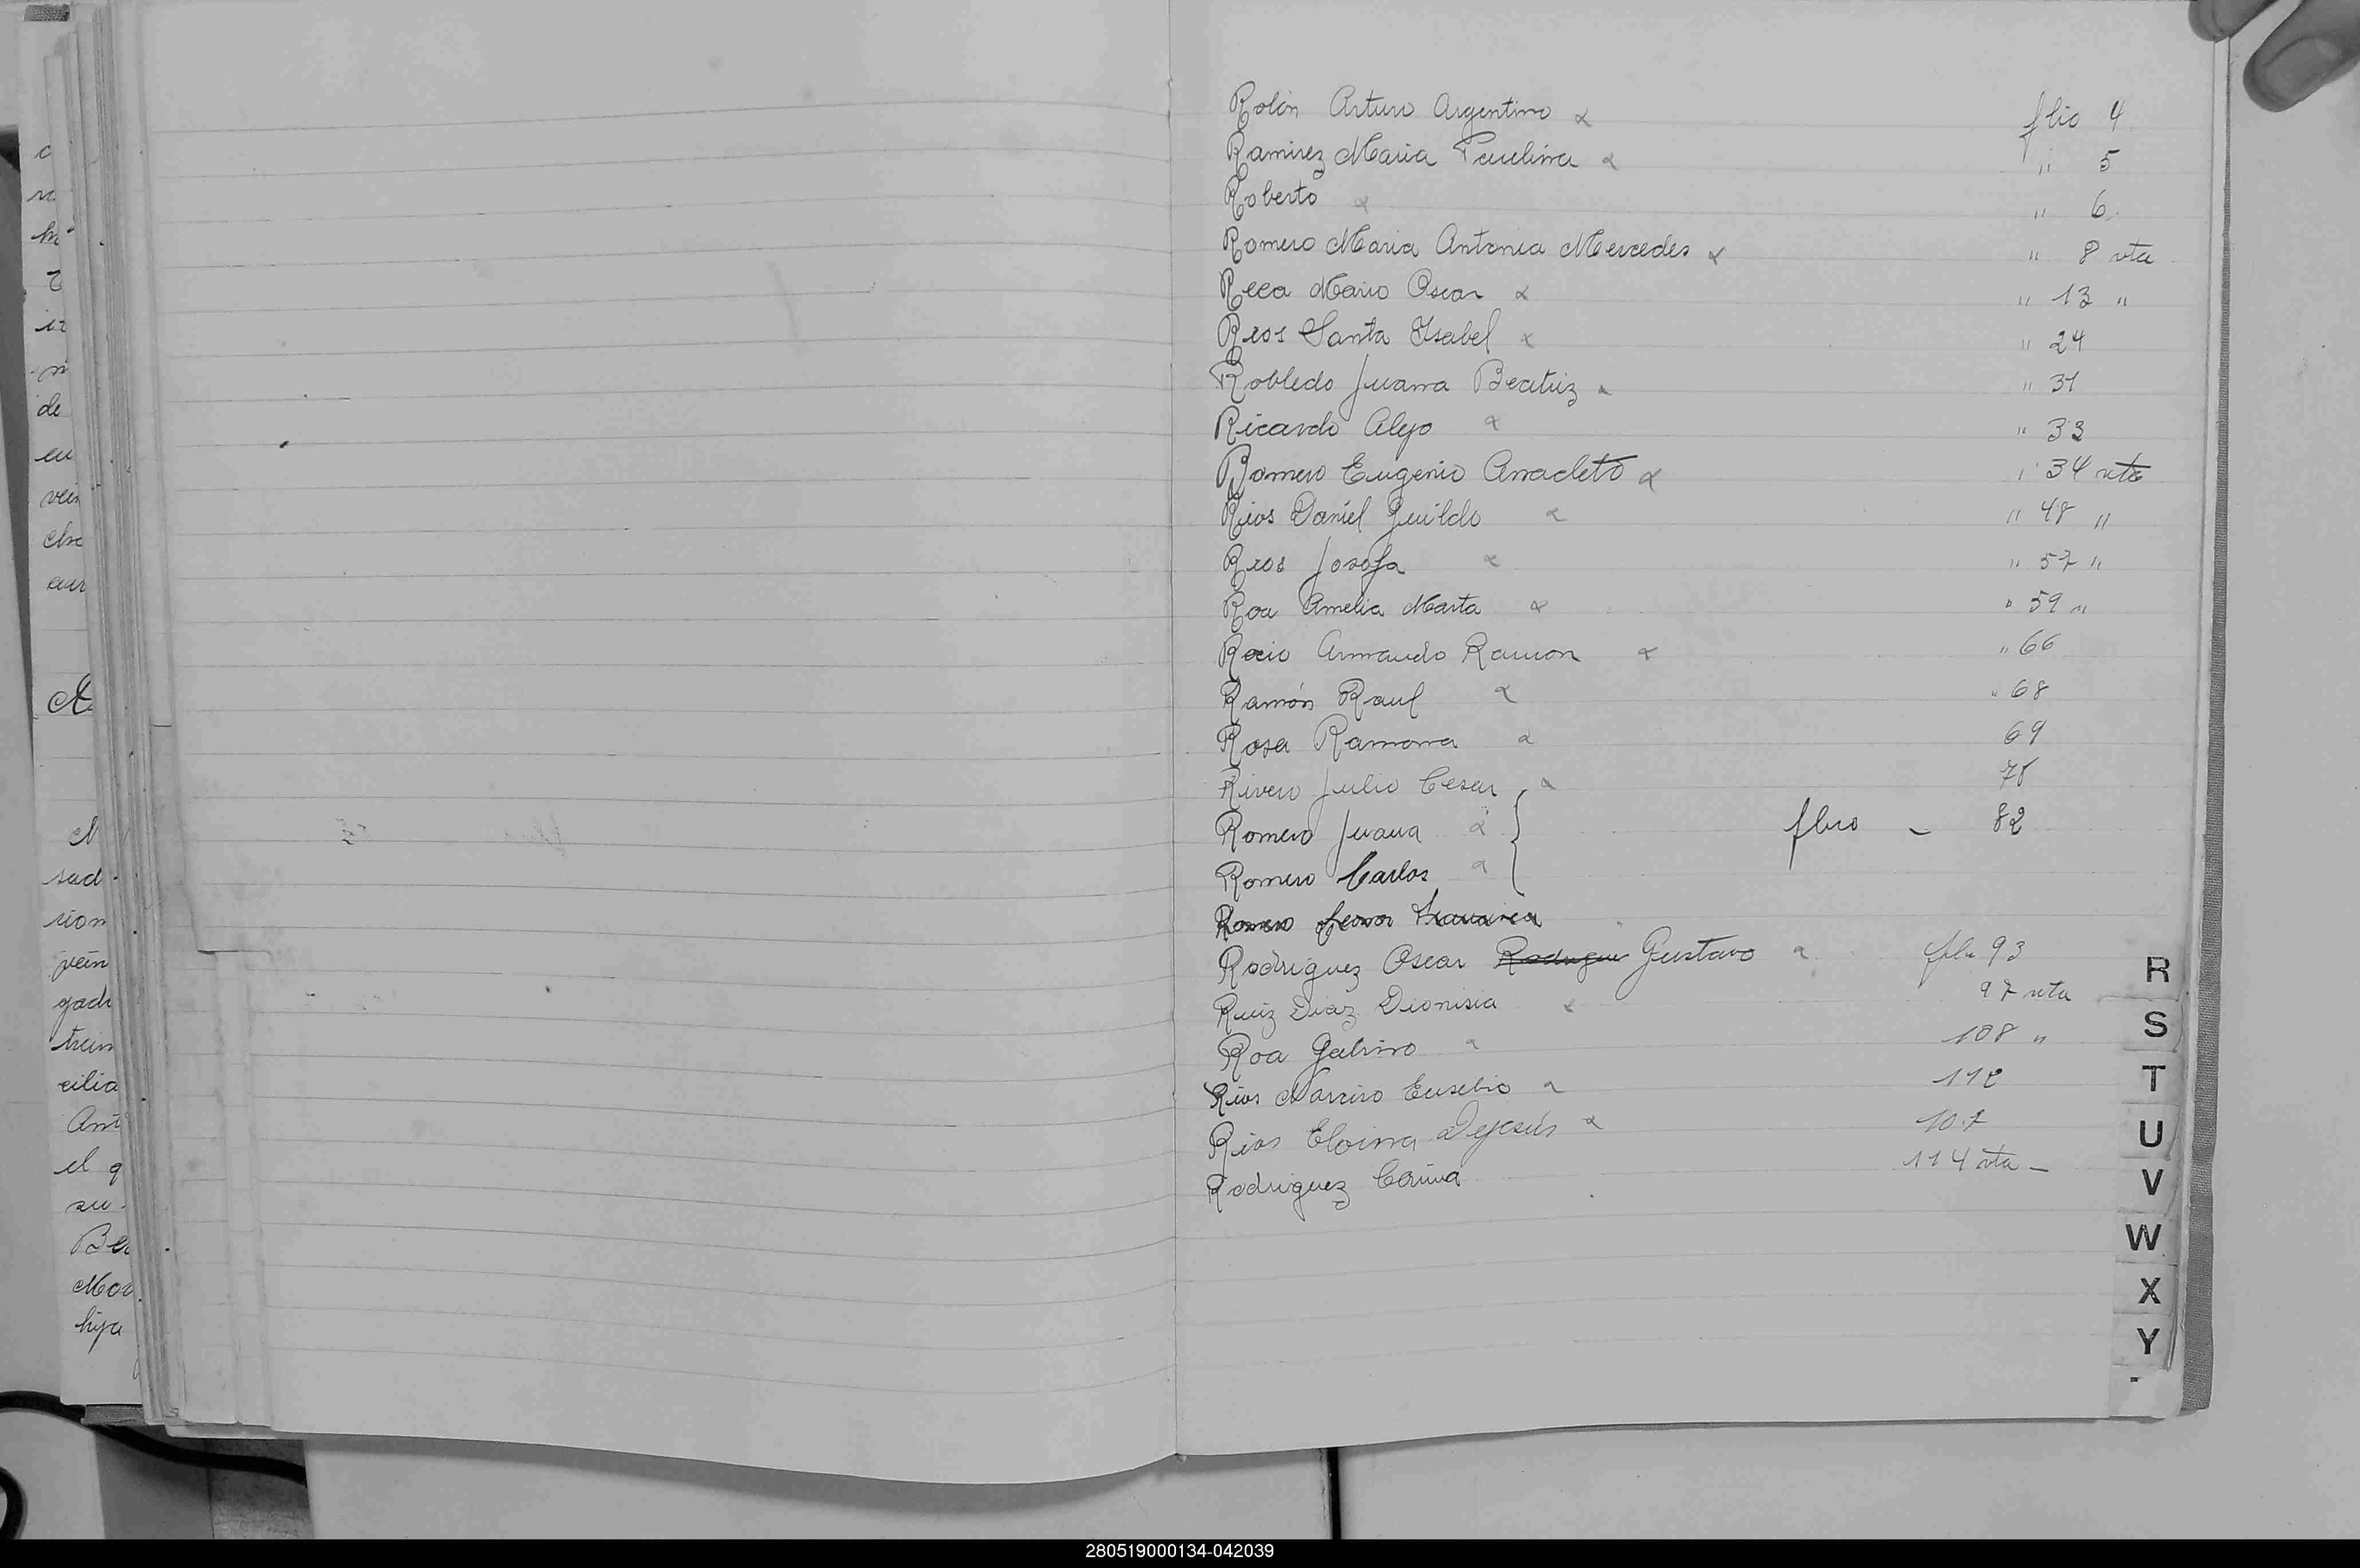 Rolón Arturo Argentino α flio 4
Ramirez Maria Paulina α " 5
Roberto α " 6
Romero Maria Antonia Mercedes α " 8 vta
Reca Mario Oscar α " 13 "
Rios Santa Isabel α " 24
Robledo Juana Beatriz α " 31
Ricardo Alejo α " 33
Romero Eugenio Anacleto α " 34 vta
Rios Daniel Guildo α " 48 "
Rios Josefa α " 57 "
Roa Amelia Marta α " 59 "
Recio Armando Ramon α " 66
Ramón Raul α " 68
Rosa Ramona α 69
Rivero Julio Cesar α 78
Romero Juana α flio - 82
Romero Carlos α
Romero
Rodriguez Oscar Rodriguez Gustavo α flio 93
Ruiz Diaz Dionisia α 97 vta
Roa Gabino α 108 "
Rios Narciso Eusebio α 112
Rios Eloina Dejesús α 107
Rodriguez Corina 114 vta -
R
S
T
U
V
W
X
Y
de
vein
sad
sion
gadi
trein
cilia
el q
su
hija
280519000134-042039